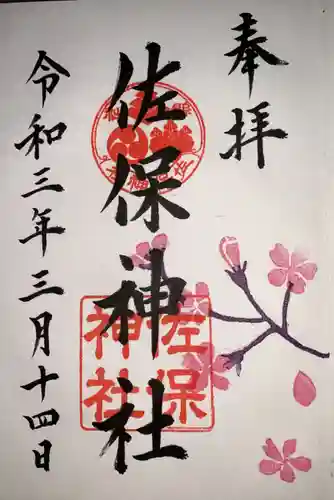 奉拝
佐保神社
令和三年三月十四日
佐保
神社